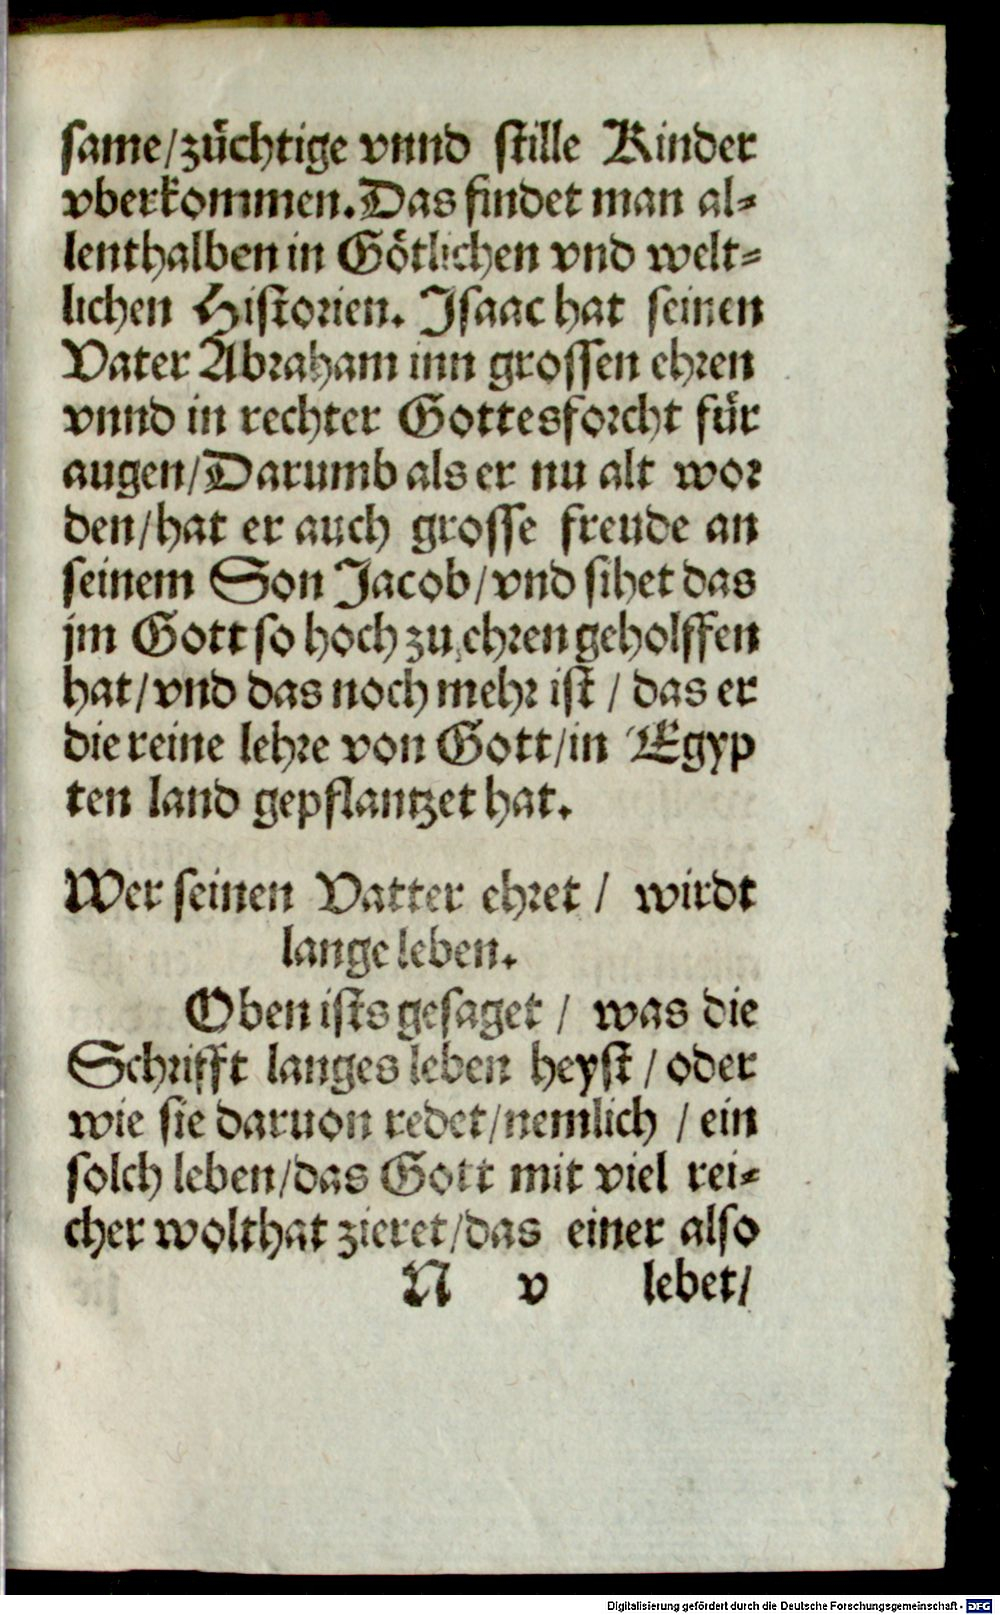 same/zůchtige vnnd stille Kinder
vberkommen. Das findet man al=
lenthalben in Gőtlichen vnd welt=
lichen Historien. Isaac hat seinen
Vater Abraham inn grossen ehren
vnnd in rechter Gottesforcht fůr
augen/Darumb als er nu alt wor
den/hat er auch grosse freude an
seinem Son Jacob/vnd sihet das
jm Gott so hoch zu ehren geholffen
hat/vnd das noch mehr ist / das er
die reine lehre von Gott/in Egyp
ten land gepflantzet hat.
Wer seinen Vatter ehret / wirdt
lange leben.
Oben ists gesaget / was die
Schrifft langes leben heyst / oder
wie sie daruon redet/nemlich / ein
solch leben/das Gott mit viel rei=
cher wolthat zieret/das einer also
N v lebet/
Digitalisierung gefördert durch die Deutsche Forschungsgemeinschaft - DFG